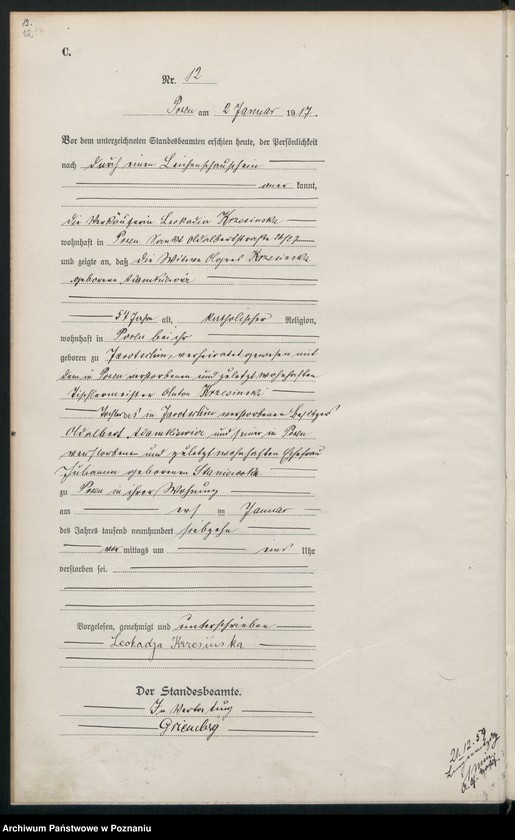 12.
C.
Nr. 12
Posen am 2 Januar 1917.
Vor dem unterzeichneten Standesbeamten erschien heute, der Persönlichkeit
nach durch einen Leichenschauschein
aner kannt,
die Verkäuferin Leokadia Krzesinska
wohnhaft in Posen Sankt Adalbertstraße 26/27
und zeigte an, daß die Witwe Agnes Krzesinska
geborene Adamkiewicz
54 Jahre alt, katholischer Religion,
wohnhaft in Posen bei ihr
geboren zu verheiratet gewesen mit
dem in Posen verstorbenen und zuletzt wohnhaften
Tischlermeister Anton Krzesinski
Tochter des in verstorbenen Besitzers
Adalbert Adamkiewicz und seiner in Posen
verstorbenen und zuletzt wohnhaften Ehefrau
Julianna geborenen
zu Posen in ihrer Wohnung
am ersten Januar
des Jahres tausend neunhundert siebzehn
vor mittags um eins Uhr
verstorben sei.
Vorgelesen, genehmigt und unterschrieben
Leokadja Krzesinska
Der Standesbeamte.
In Vertretung
21.12.59
Archiwum Państwowe w Poznaniu